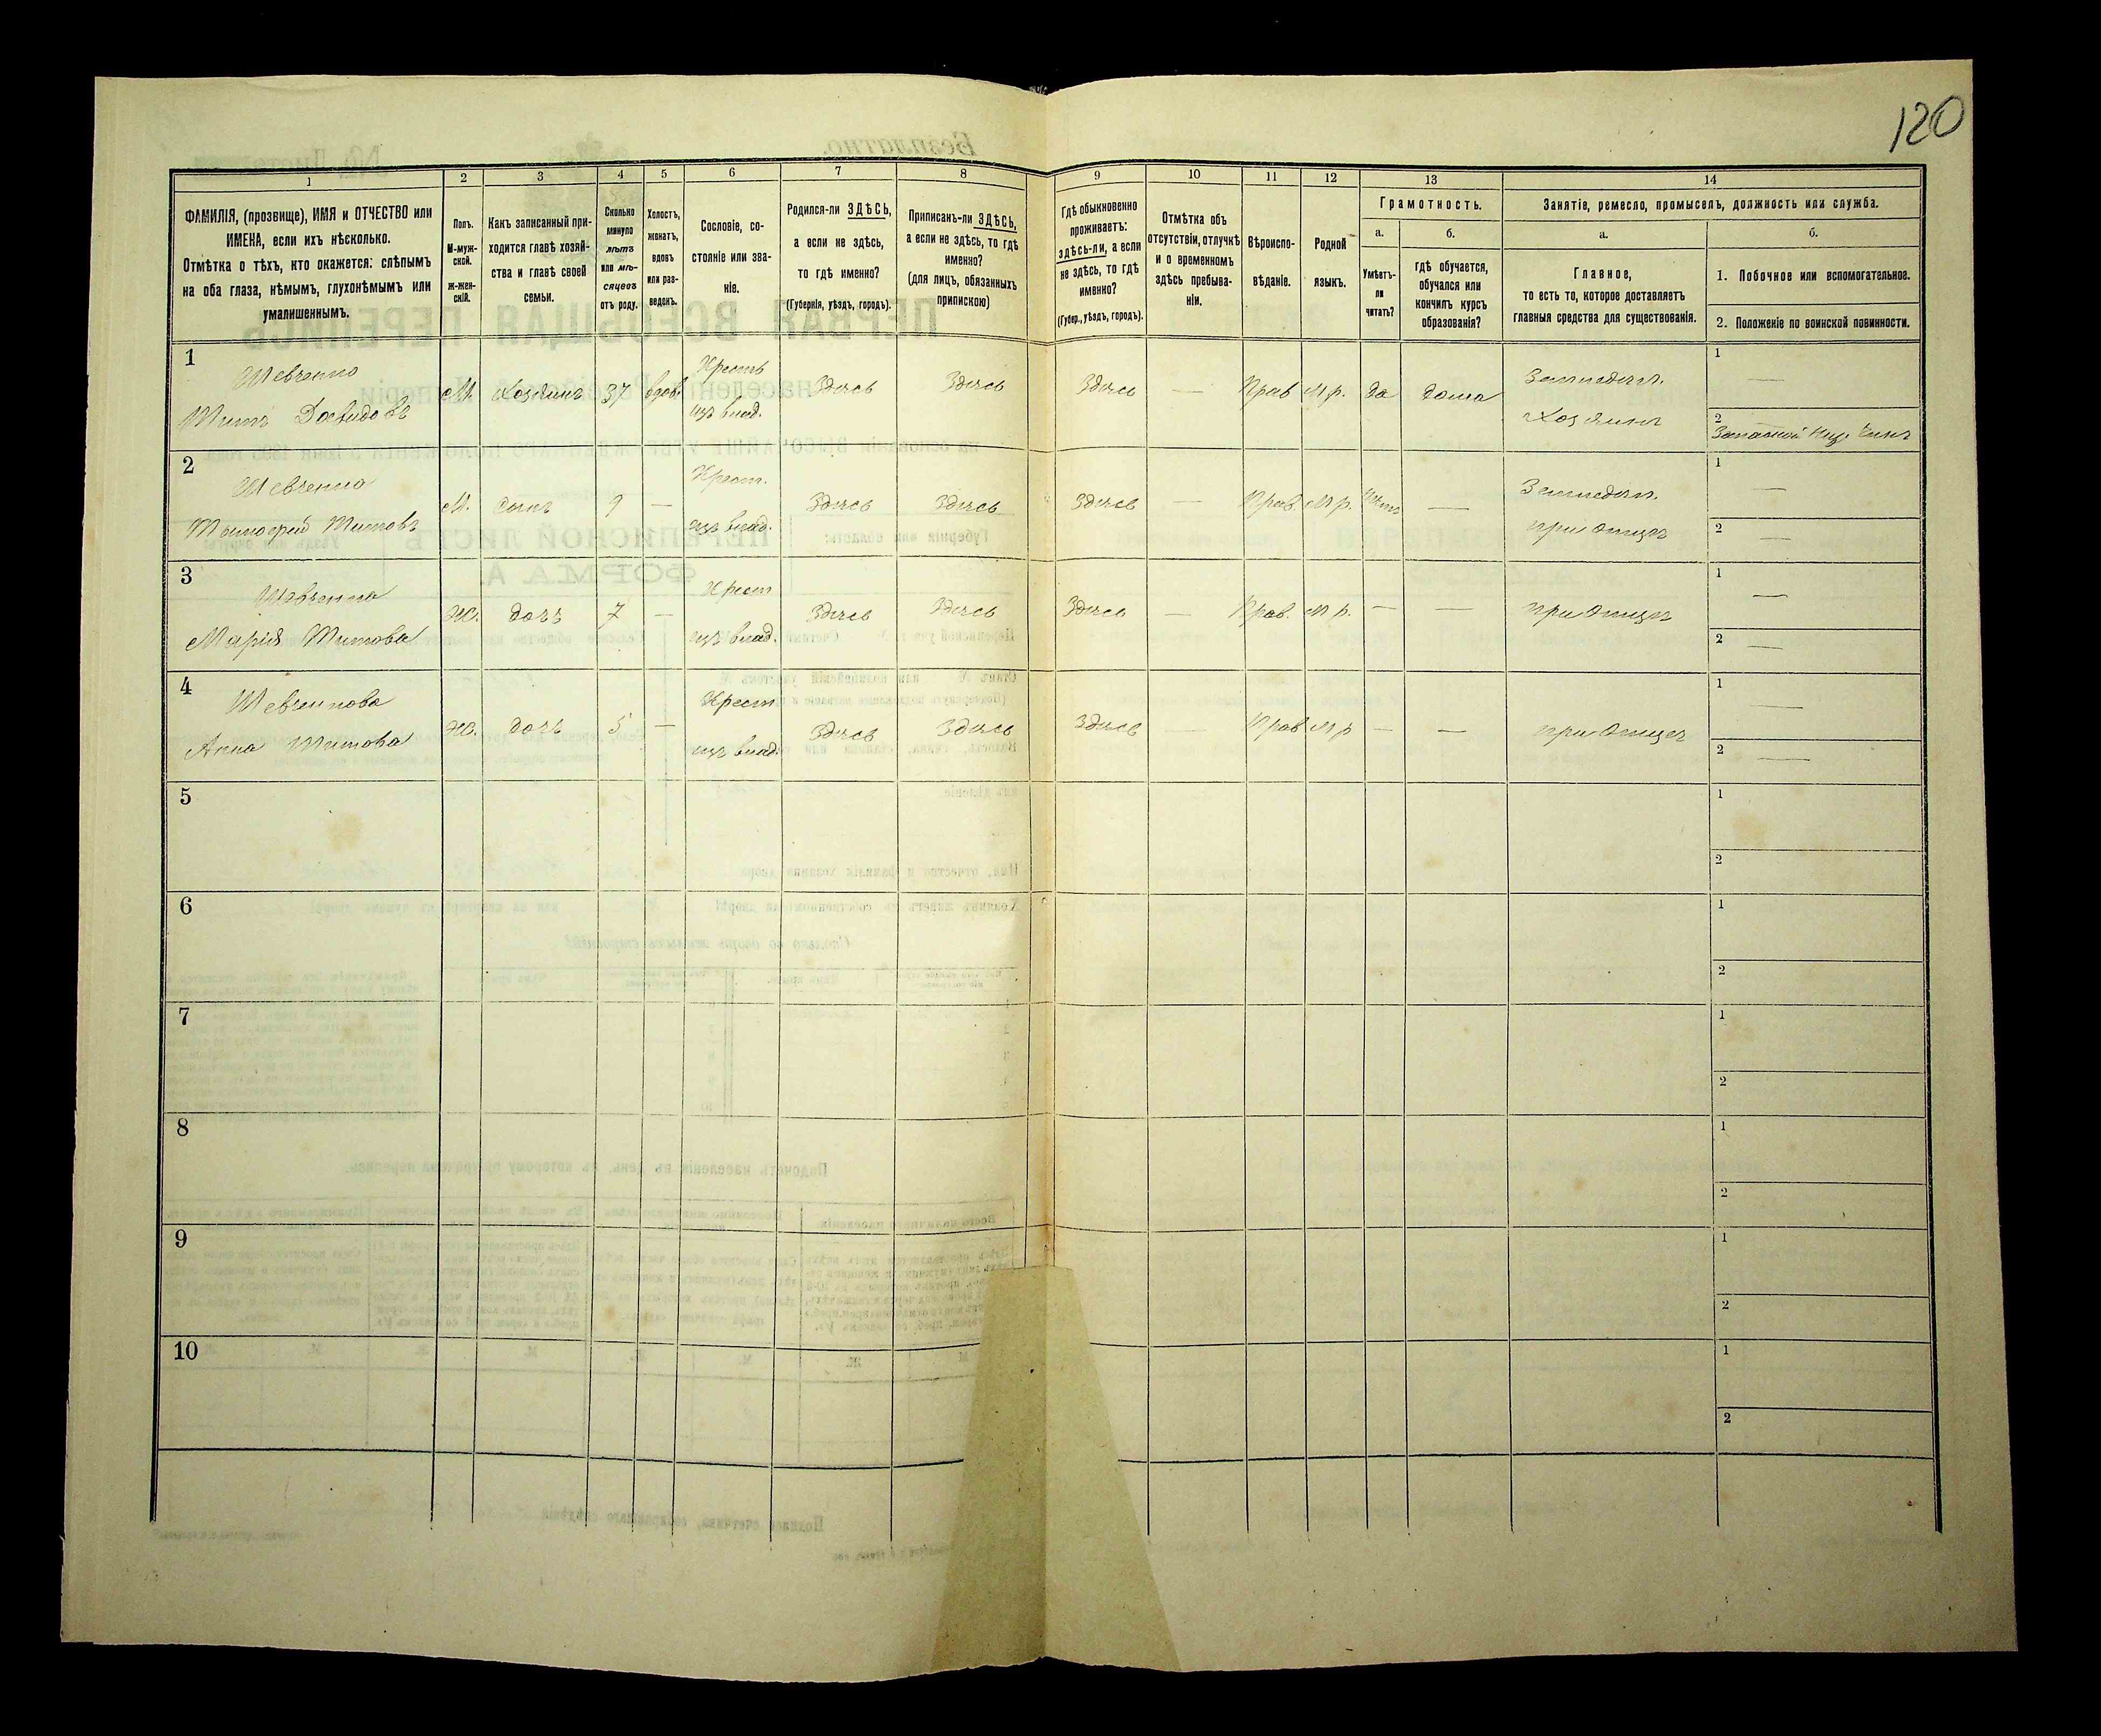 120
1
2
3
4
5
6
7
8
9
10
11
12
13
14
ФАМИЛІЯ, (прозвище), ИМЯ и ОТЧЕСТВО или
ИМЕНА, если ихъ нѣсколько.
Отмѣтка о тѣхъ, кто окажется: слѣпымъ
на оба глаза, нѣмымъ, глухонѣмымъ или
умалишеннымъ.
Полъ.
М-муж-
ской.
ж-жен-
скій.
Какъ записанный при-
ходится главѣ хозяй-
ства и главѣ своей
семьи.
Сколько
минуло
лѣтъ
или мѣ-
сяцевъ
отъ роду.
Холостъ,
женатъ,
вдовъ
или раз-
веденъ.
Сословіе, со-
стояніе или зва-
ніе.
Родился-ли ЗДѢСЬ,
а если не здѣсь,
то гдѣ именно?
(Губернія, уѣздъ, городъ).
Приписанъ-ли ЗДѢСЬ,
а если не здѣсь, то гдѣ
именно?
(для лицъ, обязанныхъ
припискою)
Гдѣ обыкновенно
проживаетъ:
здѣсь-ли, а если
не здѣсь, то гдѣ
именно?
(Губер., уѣздъ, городъ).
Отмѣтка объ
отсутствіи, отлучкѣ
и о временномъ
здѣсь пребыва-
ніи.
Вѣроиспо-
вѣданіе.
Родной
языкъ.
Грамотность.
а.
б.
Умѣетъ-
ли
читать?
гдѣ обучается,
обучался или
кончилъ курсъ
образованія?
Занятіе, ремесло, промыселъ, должность или служба.
а.
б.
Главное,
то есть то, которое доставляетъ
главныя средства для существованія.
1. Побочное или вспомогательное.
2. Положеніе по воинской повинности.
1
Шевченко
Титъ Давидовъ
М.
Хозяинъ
37
вдов.
Крестъ
изъ влад.
Здѣсь
Здѣсь
Здѣсь
—
Прав
Мр.
да
дома
Земледѣл.
Хозяинъ
1
—
2
Запасной Ниж. Чинъ
2
Шевченко
Тимофей Титовъ
М.
сынъ
9
—
Крест.
изъ влад.
Здѣсь
Здѣсь
Здѣсь
—
Прав.
Мр.
—
Земледѣл.
при отцѣ
1
—
2
—
3
Шевченко
Марія Титова
Ж.
дочь
7
—
Крест
изъ влад.
Здѣсь
Здѣсь
Здѣсь
—
Прав.
Мр.
—
—
при отцѣ
1
—
2
—
4
Шевченкова
Анна Титова
Ж.
дочь
5
—
Крест
изъ влад.
Здѣсь
Здѣсь
Здѣсь
—
Прав
Мр
—
—
при отцѣ
1
—
2
—
5
1
2
6
1
2
7
1
2
8
1
2
9
1
2
10
1
2